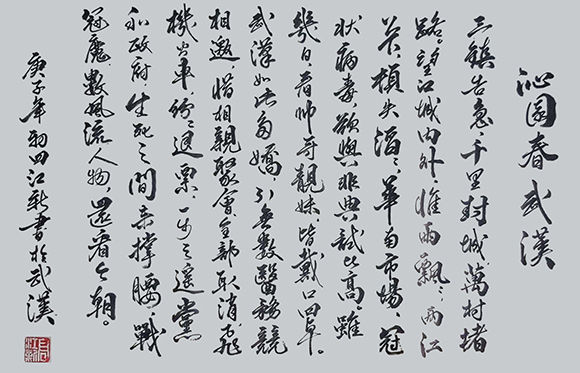 沁園春武漢
三鎮告急，千里封城，萬村堵
路。望江城内外，惟雨飄飄；兩江
頓失滔滔。華南市場，冠
狀病毒，欲與非典試比高。雖
幾日，看帥哥靚妹，皆戴口罩。
武漢如此多嬌，引無數醫務競
相邀。惜相親聚會，全部取消；飛
機火車，紛紛退票。一步之遙，黨
和政府，生死之間來撐腰。戰
冠魔，數風流人物，還看今朝。
庚子年初四江新書於武漢